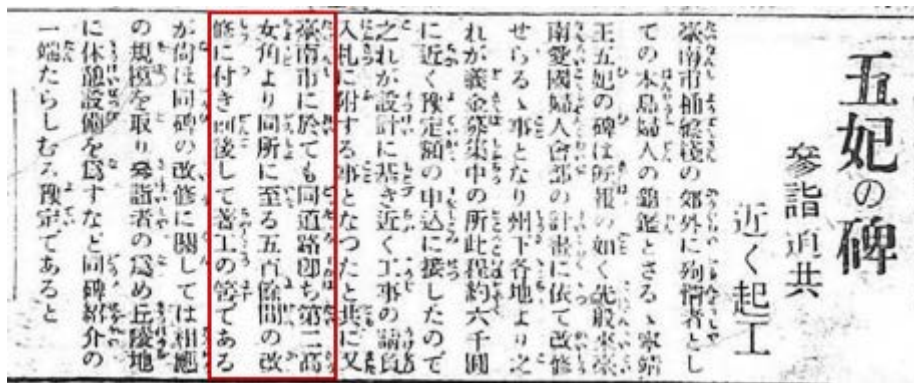 五妃の碑
參詣道共
近く起工
臺南市桶盤棧の郊外に殉情者とし
ての本島婦人の鑑鑑とさるゝ寧靖
王五妃の碑は所報の如く先般來臺
南愛國婦人會部の計畫に依て改修
せらるゝ事となり州下各地より之
れが義金募集中の所此程約六千圓
に近く豫定額の申込に接したので
之れが設計に基き近く工事の請負
入札に附する事となつたと共に又
臺南市に於ても同道路卽ち第二高
女角より同所に至る五百餘間の改
修に付き前後して著工の筈である
が尙ほ同碑の改修に關しては相應
の規模を取り參詣者の爲め丘陵地
に休憩設備を爲すなど同碑紹介の
一端たらしむる豫定であると